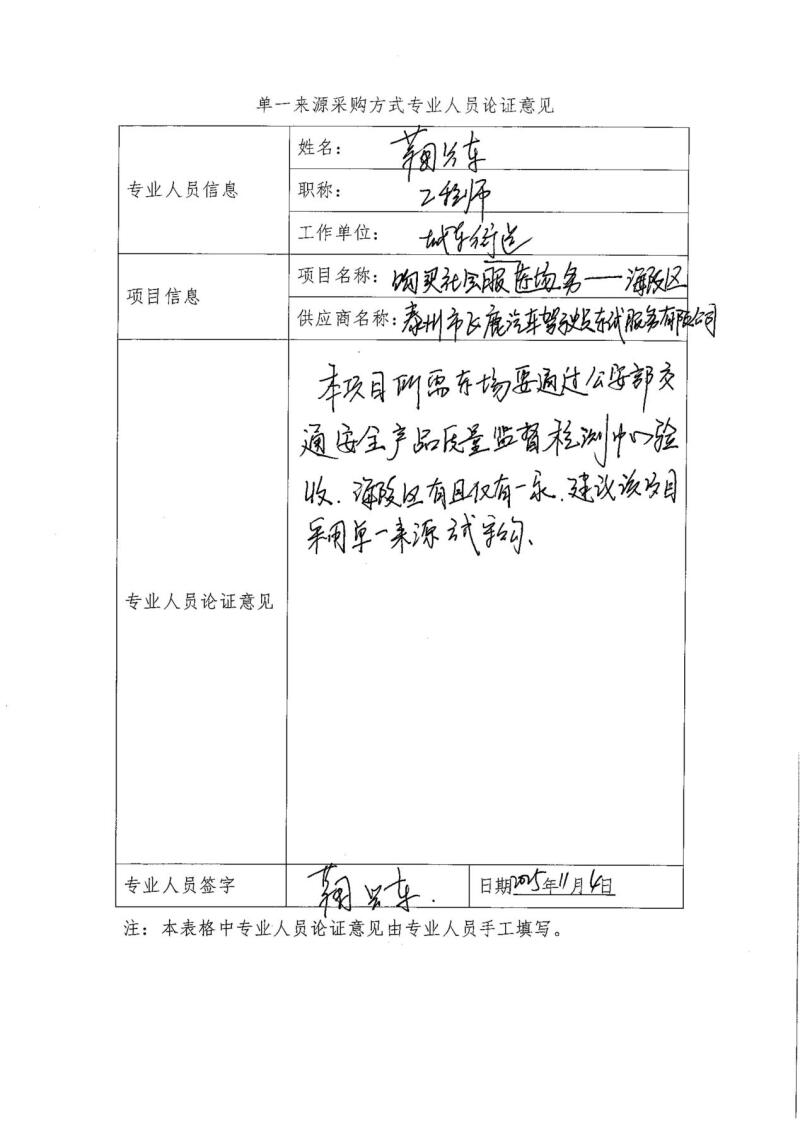 单一来源采购方式专业人员论证意见
专业人员信息
姓名: 鞠兴东
职称: 工程师
工作单位: 城东街道
项目信息
项目名称: 购买社会服 务——海陵区
供应商名称: 泰州市 鹿汽车驾驶员考试服务有限公司
专业人员论证意见
本项目所需考场要通过公安部交
通安全产品质量监督检测中心验
收、海陵区有且仅有一家、建议该项目
采用单一来源 采购、
专业人员签字 鞠兴东. 日期2025年11月4日
注: 本表格中专业人员论证意见由专业人员手工填写。